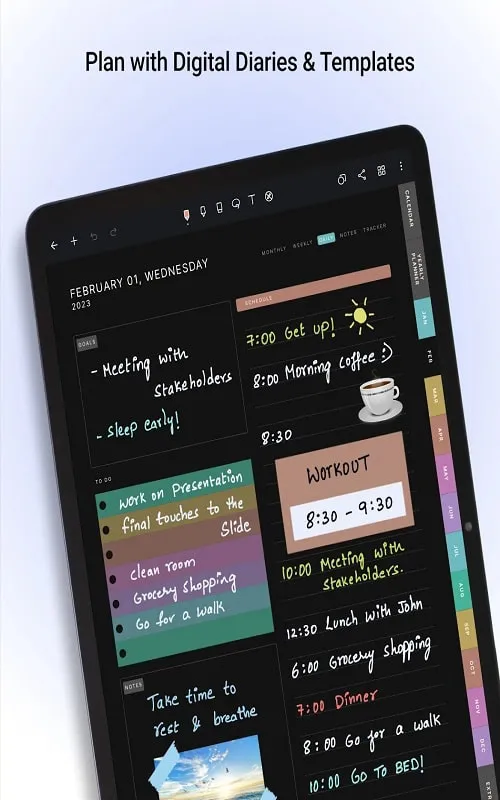 Plan with Digital Diaries & Templates
T
FEBRUARY 01, WEDNESDAY
2023
MONTHLY WEEKLY DAILY NOTES TRACKER
GOALS
- Meeting with
Stakeholders
- Sleep early!
TO DO
work on Presentation
final touches to the
Slide
clean room
Grocery shopping
Go for a walk
NOTES
Take time to
rest & breathe
SCHEDULE
7:00 Get up!
8:00 Morning coffee :)
8:30
WORKOUT
8:30 - 9:30
10:00 Meeting with
stakeholders.
12:30 Lunch with John
6:00 Grocery shopping
7:00 Dinner
8:00 Go for a walk
10:00 GO TO BED!
CALENDAR
YEARLY
PLANNER
JAN
FEB
MAR
APR
MAY
JUN
JUL
AUG
SEP
OCT
NOV
DEC
EXTR